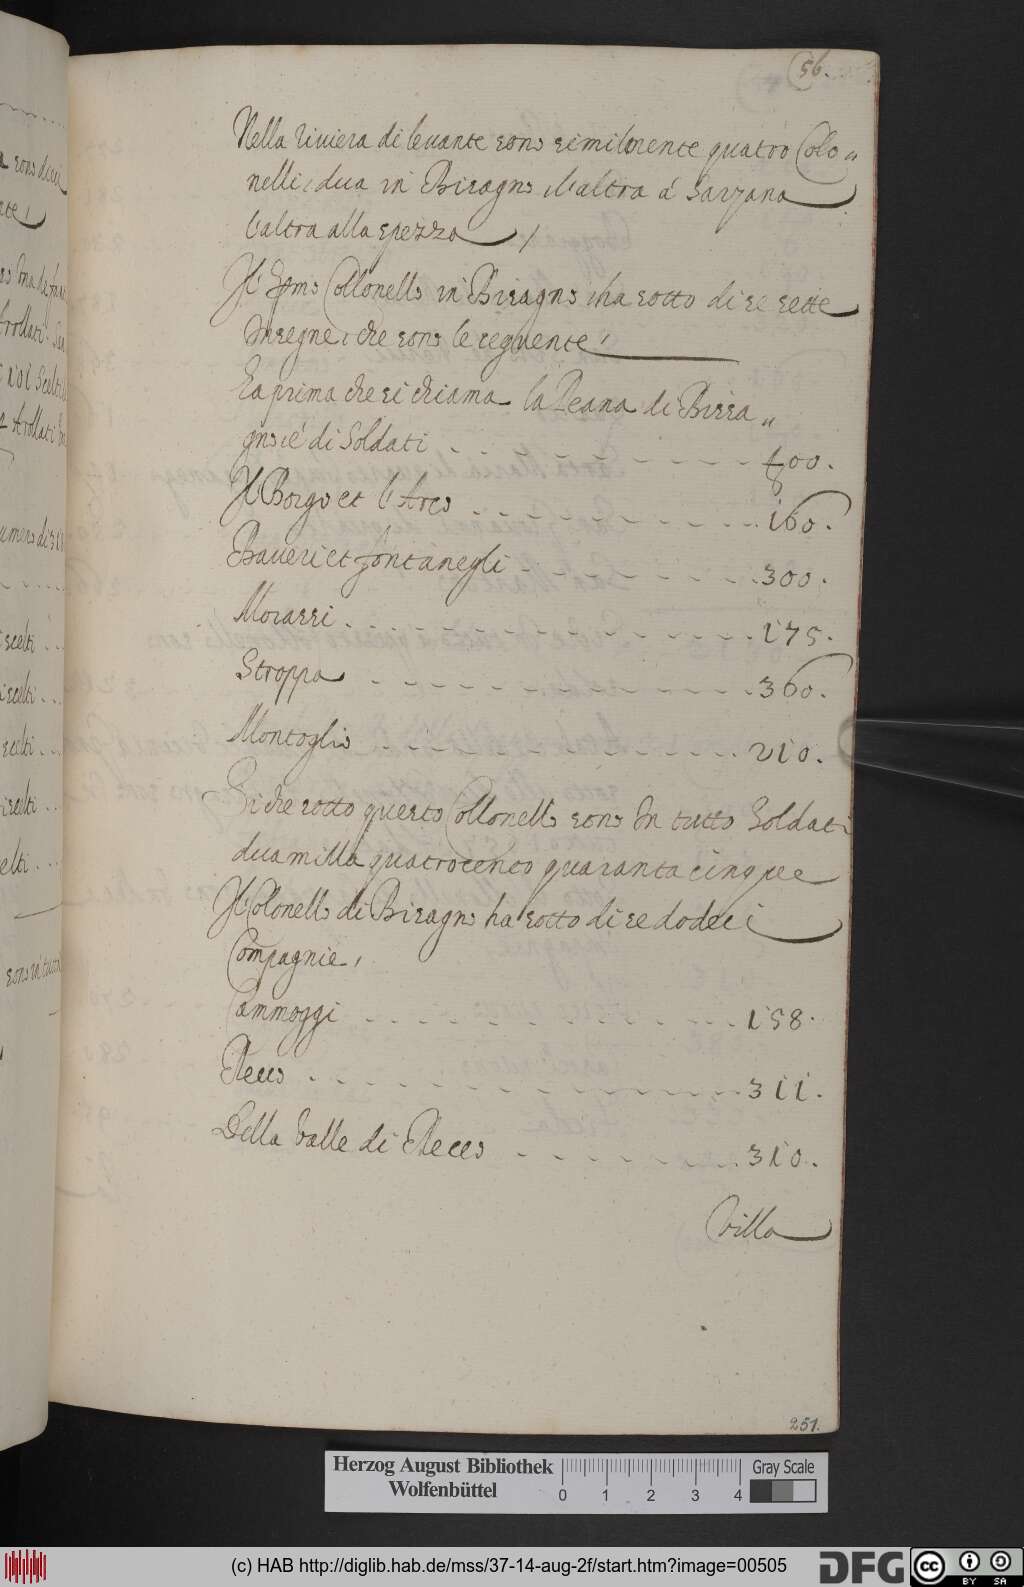 56.
Nella riviera di levante sono similmente quatro Colo„
nelli, dua in Bisagno, l'altra a' Sarzana
l'altra alla spezza /
Il Colonello in Bisagno, ha sotto di se sette
Insegne, che sono le seguente,
La prima che si chiama la Peana di Bissa„
gno, e' di Soldati 400.
Il Borgo et l'Arco 160.
Baveri et fontanegli 300.
Morassi 175.
Stroppa 360.
Montoglio 210.
Si che sotto questo Collonello sono In tutto Soldati
duamilla quatrocento quaranta cinque
Il Colonello di Bisagno ha sotto di se dodeci
Compagnie,
Cammoggi 158.
Recco 311.
Della valle di Recco 310.
Villa
251.
Herzog August Bibliothek
Wolfenbüttel
Gray Scale
0 1 2 3 4
(c) HAB http://diglib.hab.de/mss/37-14-aug-2f/start.htm?image=00505
DFG
cc BY SA